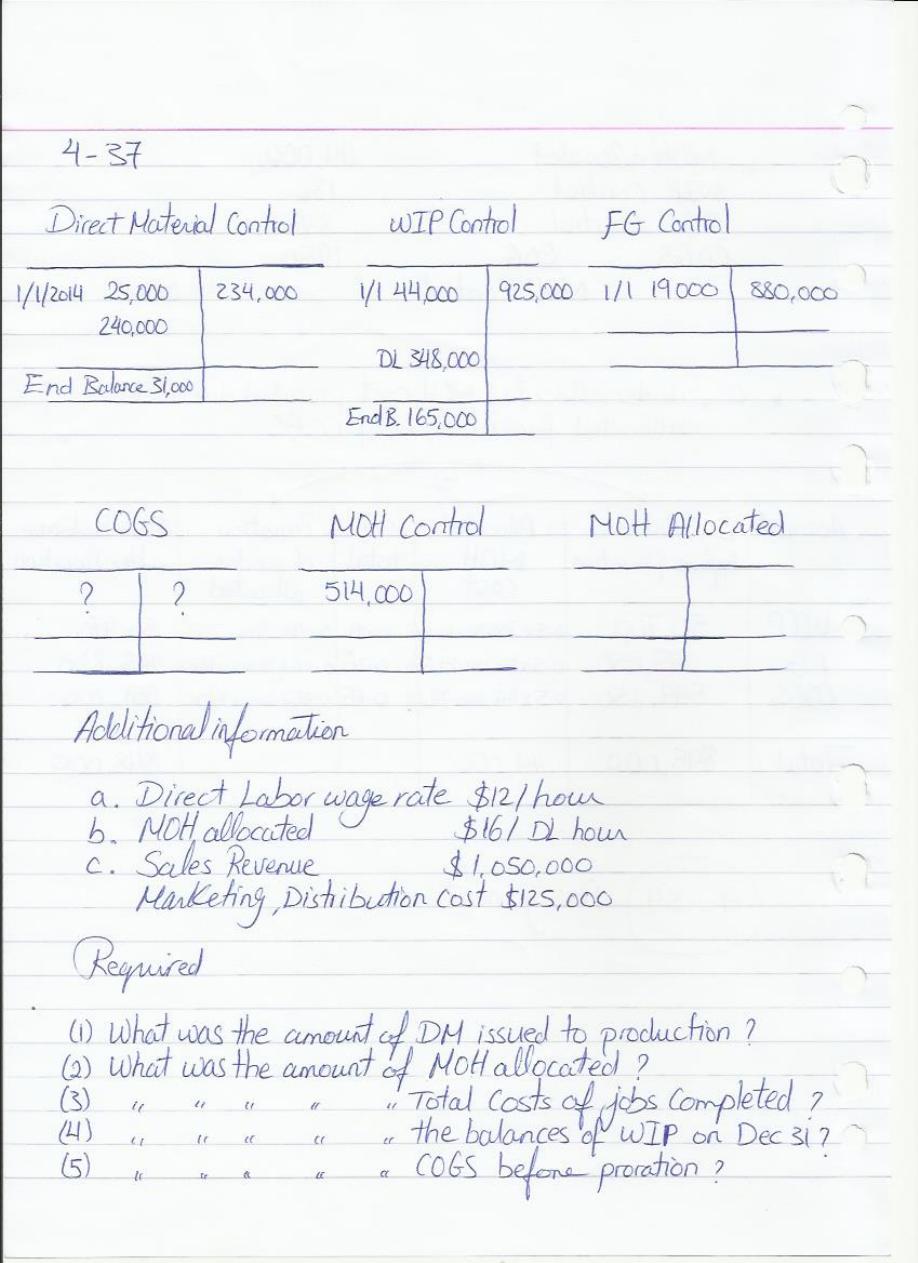 4-37
Direct Material Control WIP Control FG Control
1/1/2014 25,000 234,000 1/1 44,000 925,000 1/1 19000 880,000
240,000
DL 348,000
End Balance 31,000
End B. 165,000
COGS MOH Control MOH Allocated
? ? 514,000
Additional information
a. Direct Labor wage rate $12/hour
b. MOH allocated $16/ DL hour
c. Sales Revenue $1,050,000
Marketing, Distribution cost $125,000
Required
(1) What was the amount of DM issued to production ?
(2) What was the amount of MOH allocated ?
(3) " " " " " Total Costs of jobs Completed ?
(4) " " " " " the balances of WIP on Dec 31 ?
(5) " " " " " COGS before proration ?